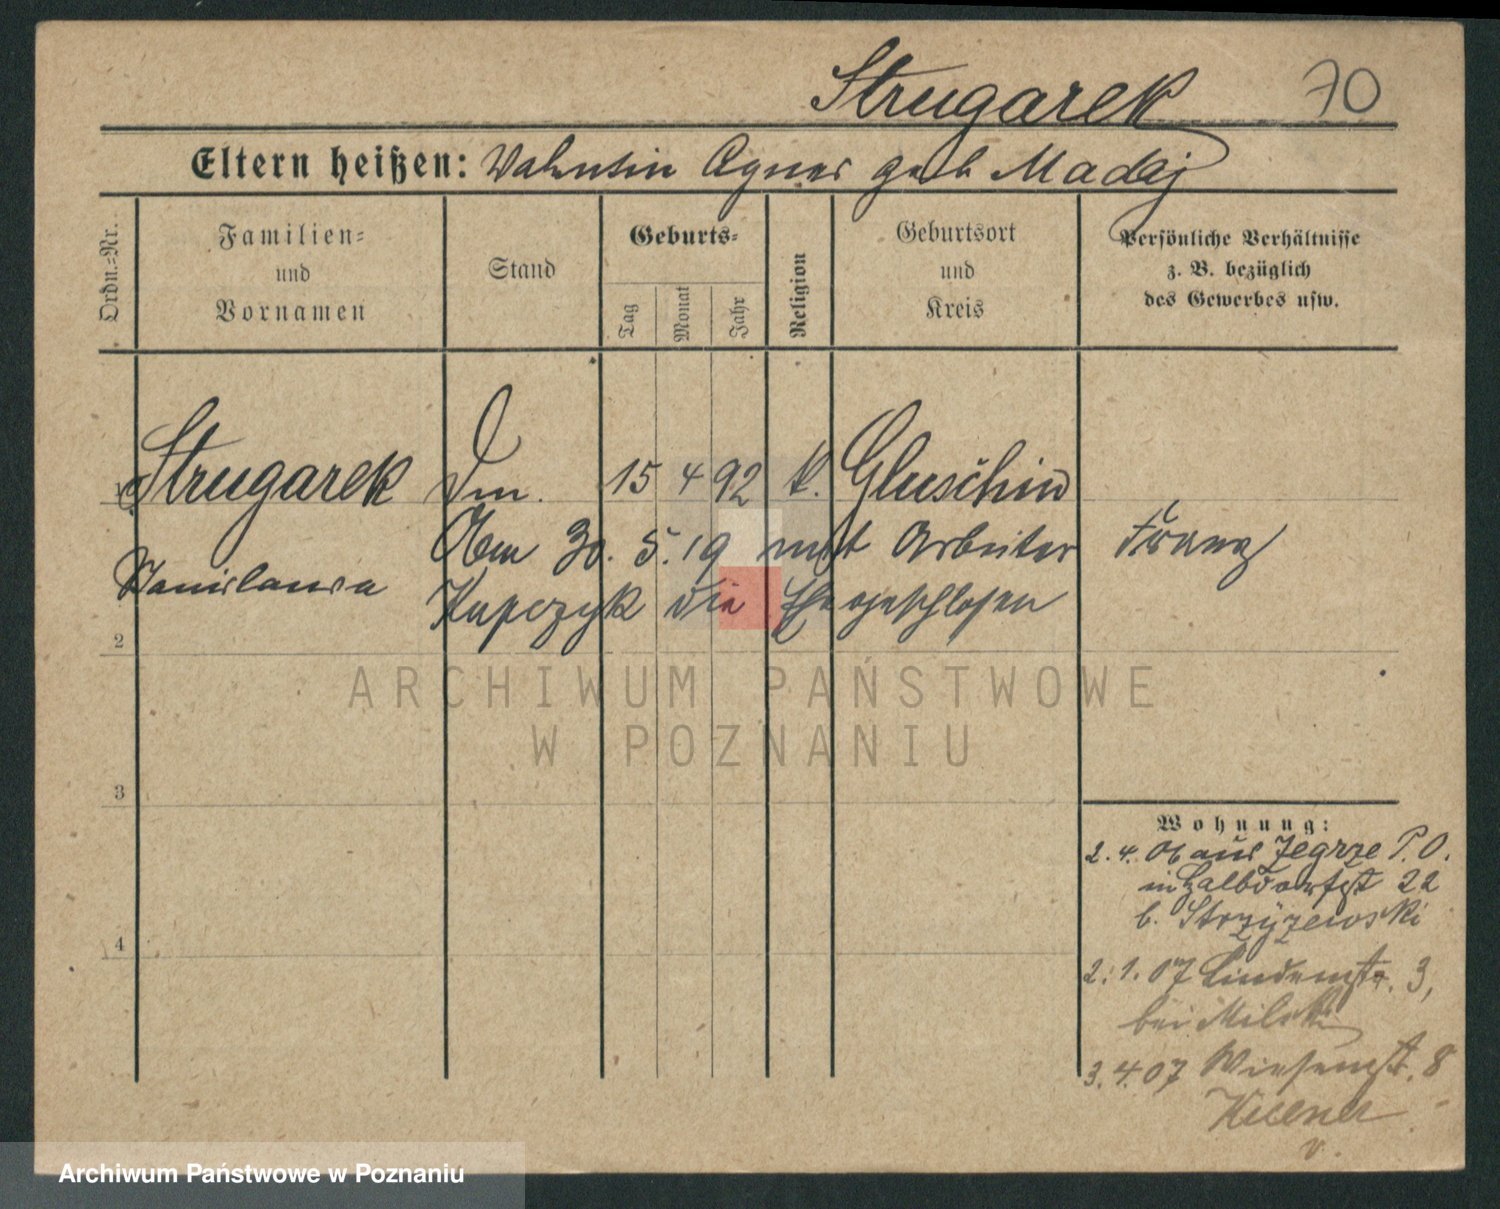 Strugarek 70
Eltern heißen: Valentin Agnes geb Madaj
Ordn.-Nr.
Familien-
und
Vornamen
Stand
Geburts-
Tag
Monat
Jahr
Religion
Geburtsort
und
Kreis
Persönliche Verhältnisse
z. B. bezüglich
des Gewerbes usw.
1 Strugarek 15 4 92 k. Gluschin
Am 30. 5. 19 mit Arbeiter Franz
Stanislawa
Kupczyk die Ehe geschlosen
2
3
4
ARCHIWUM PAŃSTWOWE
W POZNANIU
Wohnung:
2. 4. 06 aus Zegrze P. O.
in Halbdorfst 22
b. Strzyzewski
2. 1. 07 Lindenstr. 3,
bei
3. 4. 07 Wiesenst. 8
Archiwum Państwowe w Poznaniu